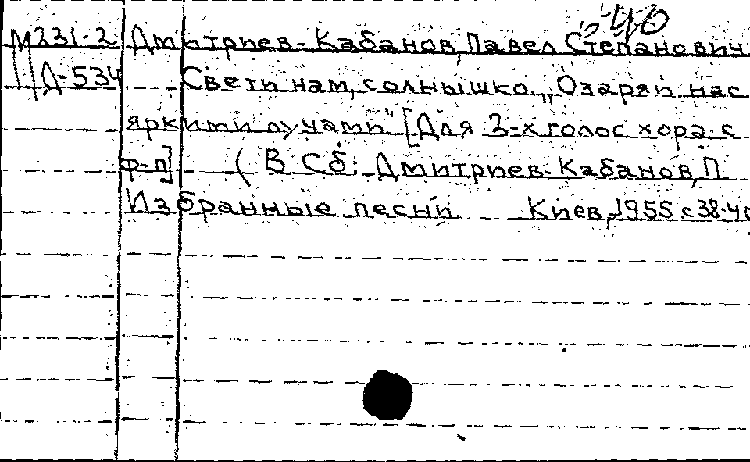 40
М231-2 Дмитриев-Кабанов, Павел Степанович
Д-534 Свети нам, солнышко. „Озаряй нас
яркими лучами" [Для 3-х голос хора с
ф-п] (В сб: Дмитриев-Кабанов, П.
Избранные песни Киев, 1955 с 38-40